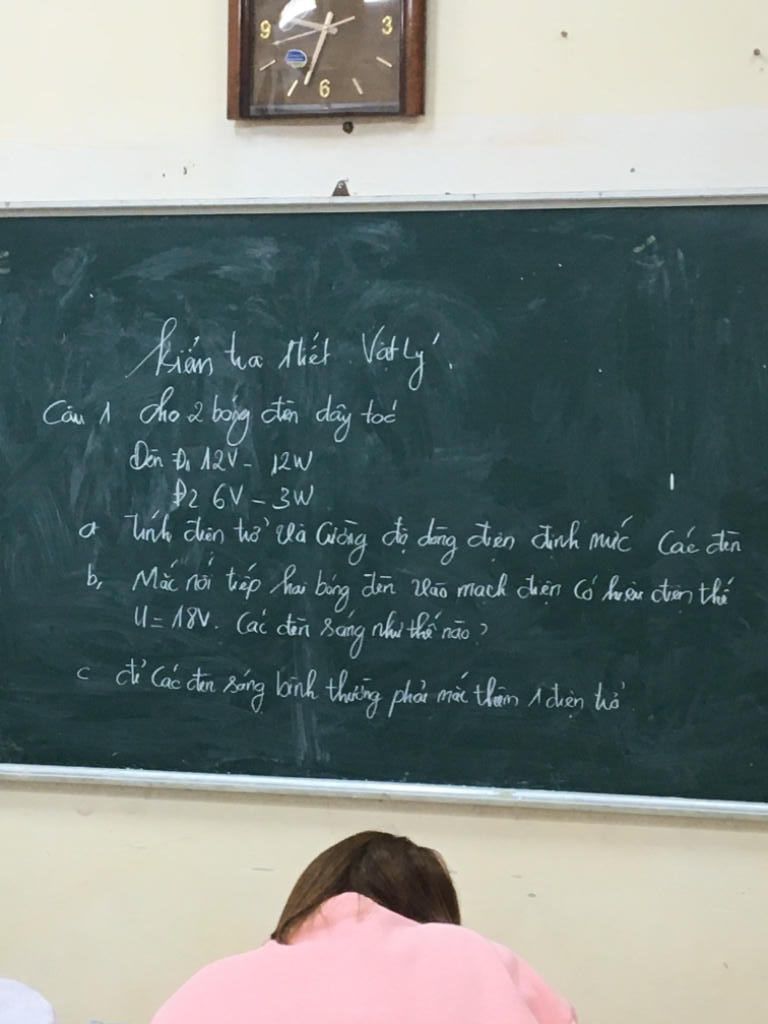 9
3
6
kiểm tra 1 tiết Vật Lý.
Câu 1 cho 2 bóng đèn dây tóc
Đèn Đ1 12V - 12W
Đ2 6V - 3W
a tính điện trở và cường độ dòng điện định mức các đèn
b, Mắc nối tiếp hai bóng đèn vào mạch điện có hiệu điện thế
U = 18V. Các đèn sáng như thế nào?
c để các đèn sáng bình thường phải mắc thêm 1 điện trở